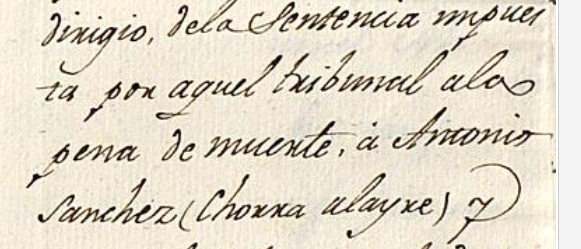 dirigio, dela Sentencia impues
ta por aquel tribunal ala
pena de muerte, à Antonio
Sanchez (Chorra alayre) y